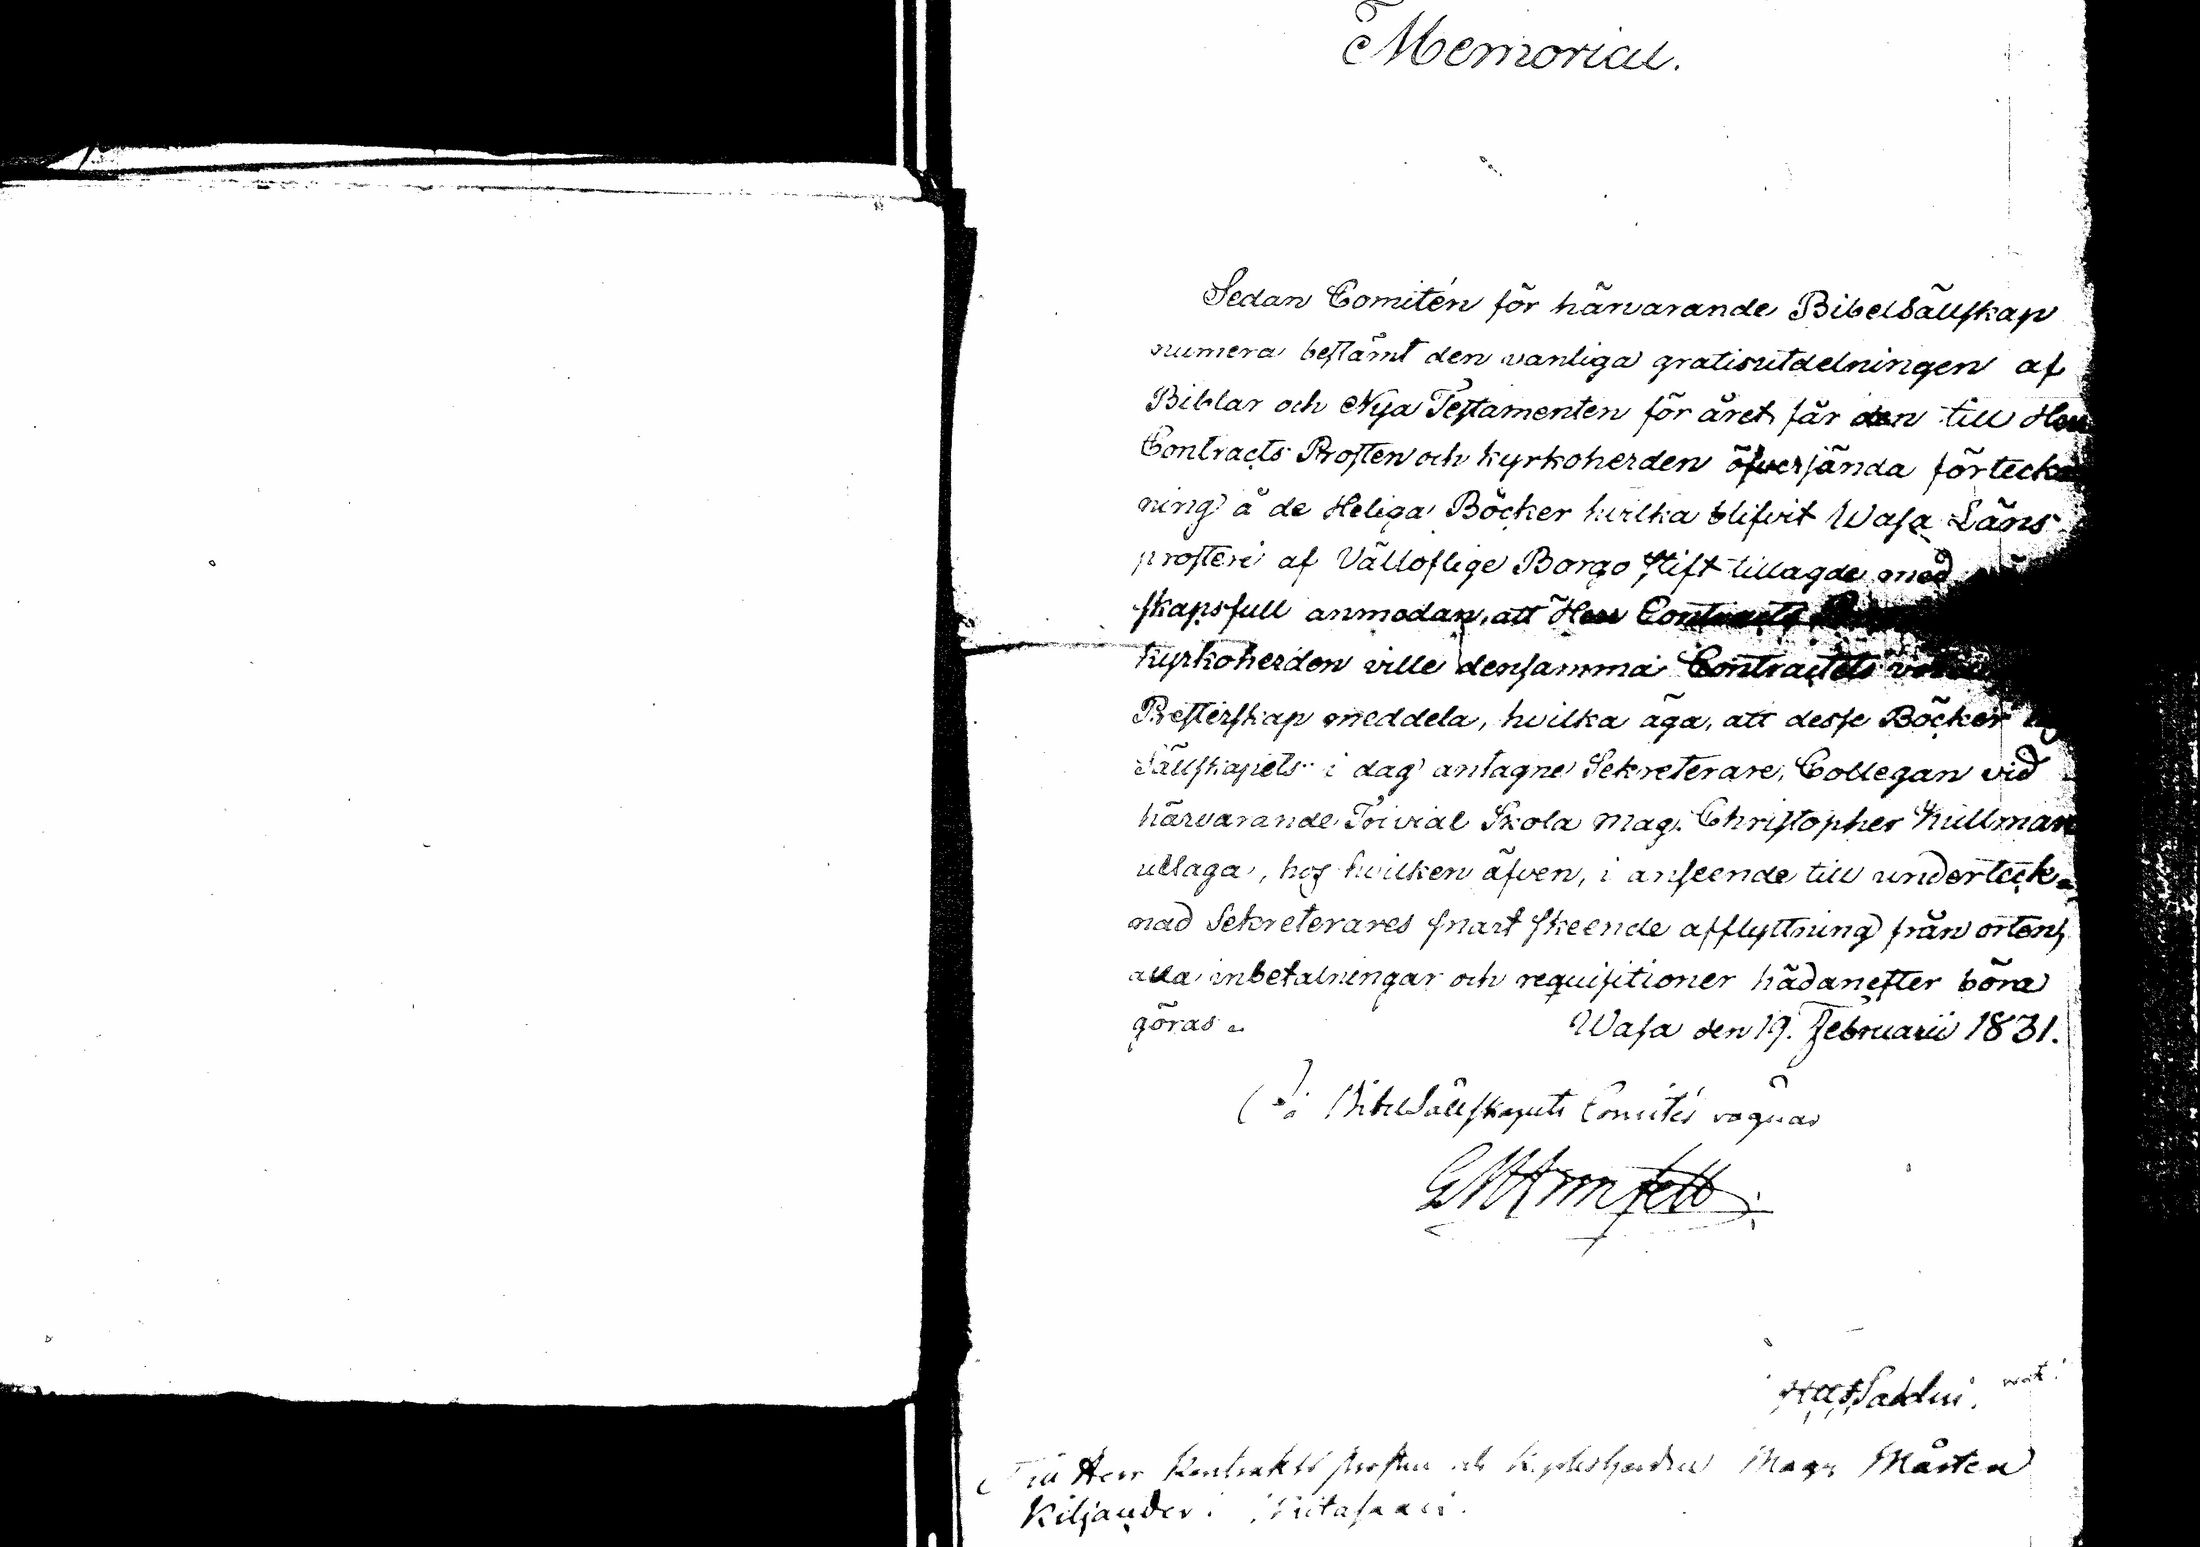 Memorial.
Sedan Comitén för härvarande Bibelsällskap
numera bestämt den vanliga gratisutdelningen af
Biblar och Nya Testamenten för året får den till Herr
Contracts Prosten och Kyrkoherden öfversända förteck
ning å de Heliga Böcker hvilka blifvit Wasa Läns
prosteri af Välloflige Borgo Stift tillagde med
skapsfull anmodan, att Herr Contracts
Kyrkoherden ville densamma Contractets
Presterskap meddela, hvilka äga, att desse Böcker
Sällskapets i dag antagne Sekreterare, Collegan vid
härvarande Trivial Skola Mag. Christopher Kullman
uttaga, hos hvilken äfven, i anseende till underteck-
nad Sekreterares snart skeende afflyttning från orten,
alla inbetalningar och requisitioner hädanefter böra
göras. Wasa den 19. Februarii 1831.
På BibelSällskapets Comités vägnar
G M Armfelt
Till Herr Kontrakts Prosten och Kyrkoherden Mag. Mårten
Kiljander i Viitasaari.